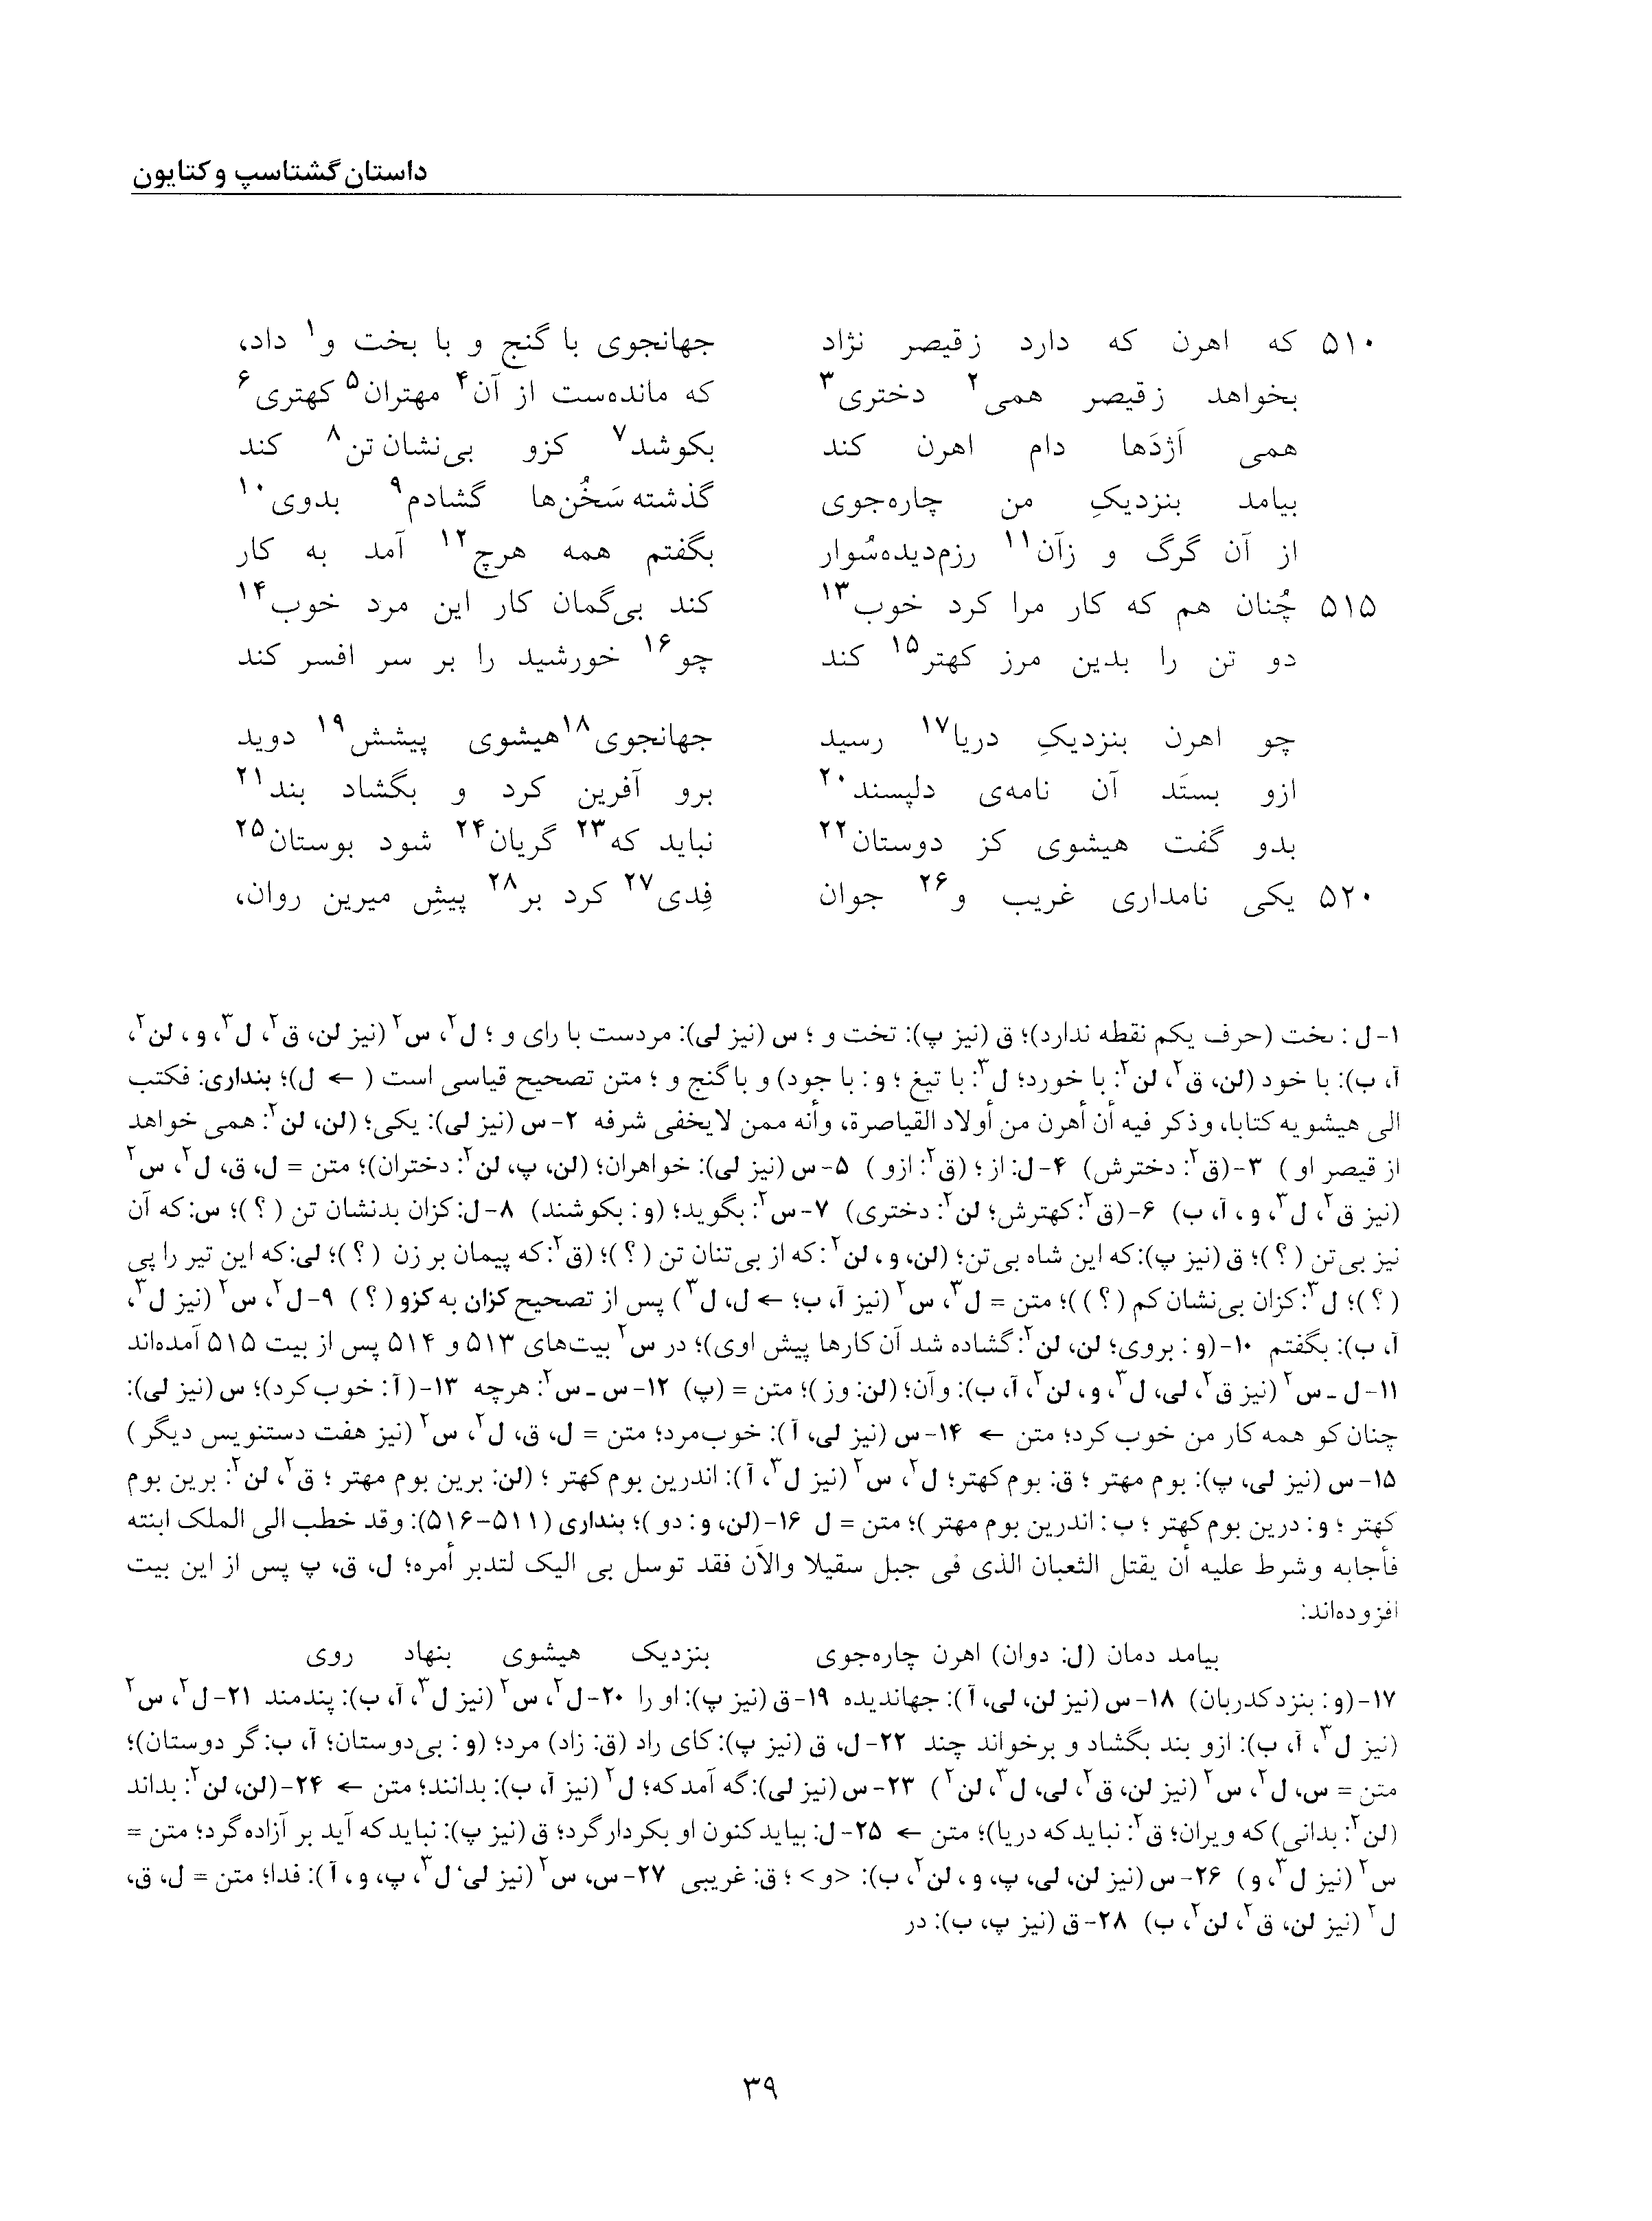 داستان گشتاسپ و کتایون
۵۱۰ که اهرن که دارد ز قیصر نژاد جهانجوی با گنج و با بخت و۱ داد،
بخواهد ز قیصر همی۲ دختری۳ که مانده‌ست از آن۴ مهتران۵ کهتری۶
همی اَژدَها دام اهرن کند بکوشد۷ کزو بی‌نشان تن۸ کند
بیامد بنزدیکِ من چاره‌جوی گذشته سَخُن‌ها گشادم۹ بدوی۱۰
از آن گرگ و زآن۱۱ رزم‌دیده‌سُوار بگفتم همه هرچ۱۲ آمد به کار
۵۱۵ چُنان هم که کار مرا کرد خوب۱۳ کند بی‌گمان کار این مرد خوب۱۴
دو تن را بدین مرز کهتر۱۵ کند چو۱۶ خورشید را بر سر افسر کند
چو اهرن بنزدیکِ دریا۱۷ رسید جهانجوی۱۸ هیشوی پیشش۱۹ دوید
ازو بستَد آن نامه‌ی دلپسند۲۰ برو آفرین کرد و بگشاد بند۲۱
بدو گفت هیشوی کز دوستان۲۲ نباید که۲۳ گریان۲۴ شود بوستان۲۵
۵۲۰ یکی نامداری غریب و۲۶ جوان فِدی۲۷ کرد بر۲۸ پیشِ میرین روان،
۱-ل: ٮخت (حرف یکم نقطه ندارد)؛ ق (نیز پ): تخت و؛ س (نیز لی): مردست با رای و؛ ل۲، س۲ (نیز لن، ق۲، ل۳، و، لن۲،
آ، ب): با خود (لن، ق۲، لن۲: با خورد؛ ل۳: با تیغ؛ و: با جود) و با گنج و؛ متن تصحیح قیاسی است (← ل)؛ بنداری: فکتب
الی هیشویه کتابا، وذکر فیه أن أهرن من أولاد القیاصرة، وأنه ممن لایخفی شرفه ۲-س (نیز لی): یکی؛ (لن، لن۲: همی خواهد
از قیصر او) ۳-(ق۲: دخترش) ۴-ل: از؛ (ق۲: ازو) ۵-س (نیز لی): خواهران؛ (لن، پ، لن۲: دختران)؛ متن = ل، ق، ل۲، س۲
(نیز ق۲، ل۳، و، آ، ب) ۶-(ق۲: کهترش؛ لن۲: دختری) ۷-س۲: بگوید؛ (و: بکوشند) ۸-ل: کزان بدنشان تن (؟)؛ س: که آن
نیز بی‌تن (؟)؛ ق (نیز پ): که این شاه بی‌تن؛ (لن، و، لن۲: که از بی‌تنان تن (؟)؛ (ق۲: که پیمان بر زن (؟)؛ لی: که این تیر را پی
(؟)؛ ل۳: کزان بی‌نشان کم (؟))؛ متن = ل۳، س۲ (نیز آ، ب؛ ← ل، ل۳) پس از تصحیح کزان به کزو (؟) ۹-ل۲، س۲ (نیز ل۳،
آ، ب): بگفتم ۱۰-(و: بروی؛ لن، لن۲: گشاده شد آن کارها پیش اوی)؛ در س۲ بیت‌های ۵۱۳ و ۵۱۴ پس از بیت ۵۱۵ آمده‌اند
۱۱-ل ـ س۲ (نیز ق۲، لی، ل۳، و، لن۲، آ، ب): وآن؛ (لن: وز)؛ متن = (پ) ۱۲-س ـ س۲: هرچه ۱۳-(آ: خوب کرد)؛ س (نیز لی):
چنان کو همه کار من خوب کرد؛ متن ← ۱۴-س (نیز لی، آ): خوب‌مرد؛ متن = ل، ق، ل۲، س۲ (نیز هفت دستنویس دیگر)
۱۵-س (نیز لی، پ): بوم مهتر؛ ق: بوم کهتر؛ ل۲، س۲ (نیز ل۳، آ): اندرین بوم کهتر؛ (لن: برین بوم مهتر؛ ق۲، لن۲: برین بوم
کهتر؛ و: درین بوم کهتر؛ ب: اندرین بوم مهتر)؛ متن = ل ۱۶-(لن، و: دو)؛ بنداری (۵۱۱-۵۱۶): وقد خطب الی الملک ابنته
فأجابه وشرط علیه أن یقتل الثعبان الذی فی جبل سقیلا والآن فقد توسل بی الیک لتدبر أمره؛ ل، ق، پ پس از این بیت
افزوده‌اند:
بیامد دمان (ل: دوان) اهرن چاره‌جوی بنزدیک هیشوی بنهاد روی
۱۷-(و: بنزد کدربان) ۱۸-س (نیز لن، لی، آ): جهاندیده ۱۹-ق (نیز پ): او را ۲۰-ل۲، س۲ (نیز ل۳، آ، ب): پندمند ۲۱-ل۲، س۲
(نیز ل۳، آ، ب): ازو بند بگشاد و برخواند چند ۲۲-ل، ق (نیز پ): کای راد (ق: زاد) مرد؛ (و: بی‌دوستان؛ آ، ب: گر دوستان)؛
متن = س، ل۲، س۲ (نیز لن، ق۲، لی، ل۳، لن۲) ۲۳-س (نیز لی): گه آمد که؛ ل۲ (نیز آ، ب): بدانند؛ متن ← ۲۴-(لن، لن۲: بداند
(لن۲: بدانی) که ویران؛ ق۲: نباید که دریا)؛ متن ← ۲۵-ل: بیاید کنون او بکردار گرد؛ ق (نیز پ): نباید که آید بر آزاده گرد؛ متن =
س۲ (نیز ل۳، و) ۲۶-س (نیز لن، لی، پ، و، لن۲، ب): <و>؛ ق: غریبی ۲۷-س، س۲ (نیز لی، ل۳، پ، و، آ): فدا؛ متن = ل، ق،
ل۲ (نیز لن، ق۲، لن۲، ب) ۲۸-ق (نیز پ، ب): در
۳۹